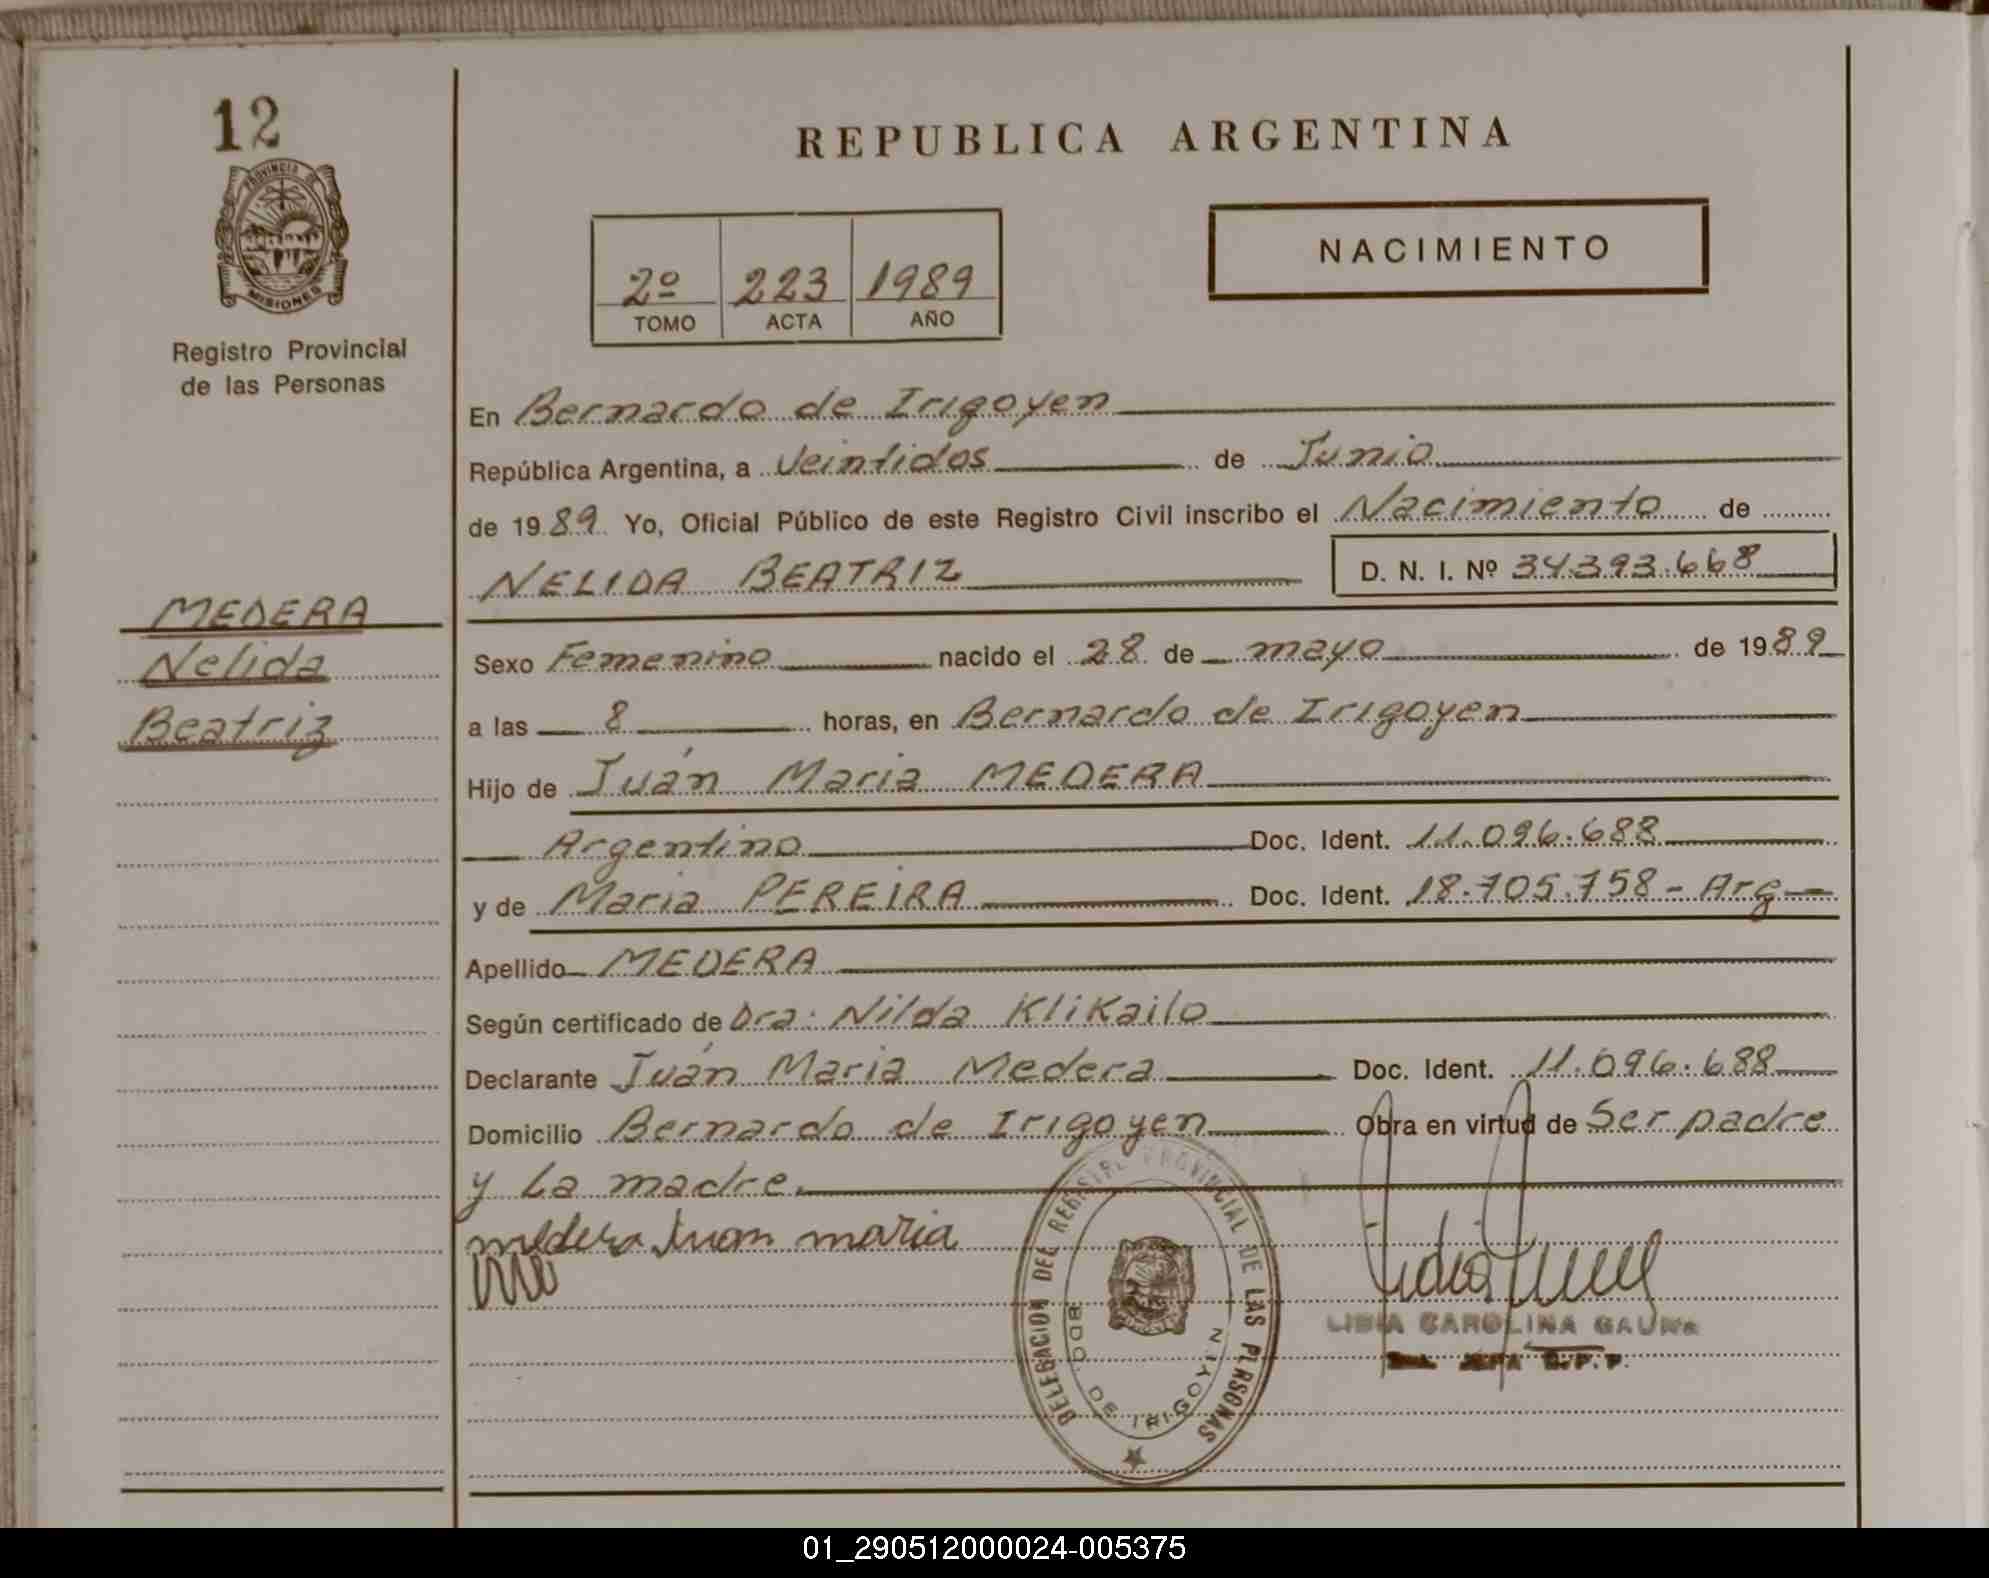 12
PROVINCIA DE
MISIONES
Registro Provincial
de las Personas
MEDERA
Nelida
Beatriz
REPUBLICA ARGENTINA
2º 223 1989
TOMO ACTA AÑO
NACIMIENTO
En Bernardo de Irigoyen
República Argentina, a Veintidos de Junio
de 1989 Yo, Oficial Público de este Registro Civil inscribo el Nacimiento de
NELIDA BEATRIZ D. N. I. Nº 34.393.668
Sexo Femenino nacido el 28 de mayo de 1989
a las 8 horas, en Bernardo de Irigoyen
Hijo de Juán Maria MEDERA
Argentino Doc. Ident. 11.096.688
y de Maria PEREIRA Doc. Ident. 18.705.758 - Arg
Apellido MEDERA
Según certificado de Dra: Nilda Klikailo
Declarante Juán Maria Medera Doc. Ident. 11.096.688
Domicilio Bernardo de Irigoyen Obra en virtud de Ser padre
y La madre.
medera Juan maria
DELEGACION DEL REGISTRO PROVINCIAL DE LAS PERSONAS
BDO. DE IRIGOYEN
LIDIA CAROLINA GAUNA
JEFA R.P.P.
01_290512000024-005375